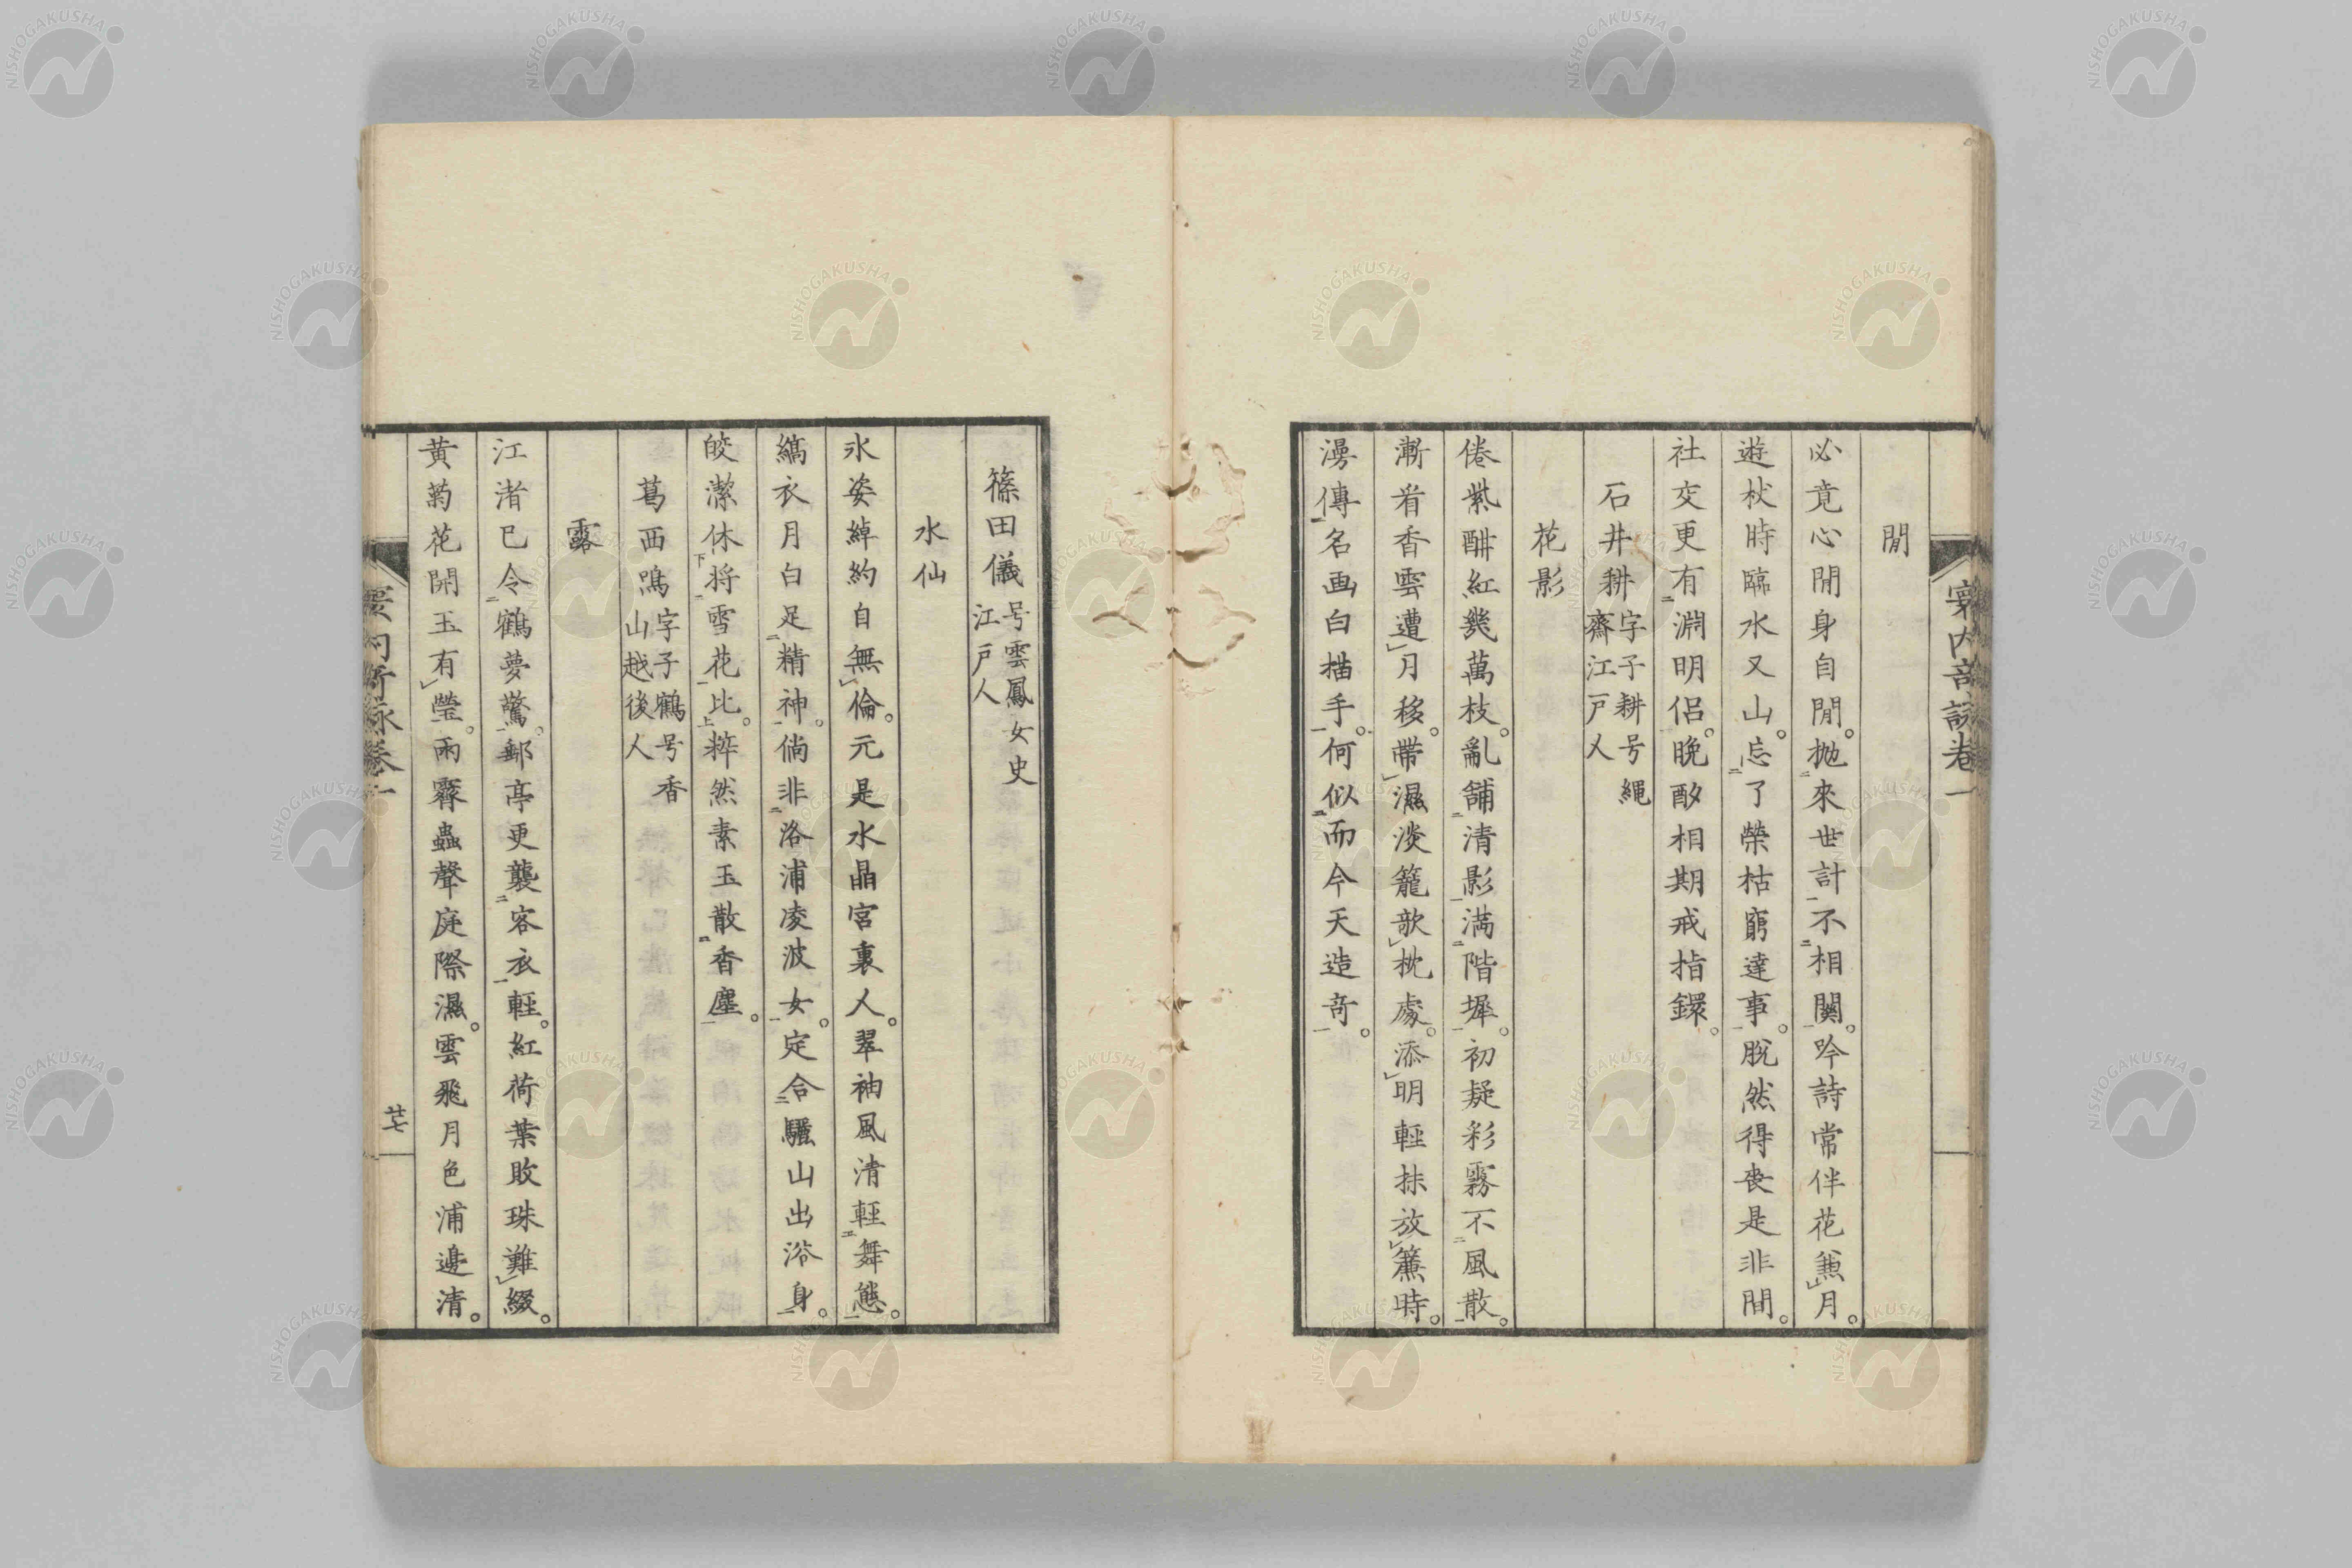 閒
必竟心閒身自閒。抛來世計不相關。吟詩常伴花兼月。
遊杖時臨水又山。忘了榮枯窮達事。脫然得喪是非間。
社交更有淵明侶。晚酌相期戒指鐶。
石井耕 字子耕号繩
齋江戸人
花影
倦紫酣紅幾萬枝。亂舖清影滿階墀。初疑彩霧不風散。
漸看香雲遭月移。帶濕淡籠欹枕處。添明輕抹放簾時。
漫傳名画白描手。何似而今天造奇。
篠田儀 号雲鳳女史
江戸人
水仙
氷姿綽約自無倫。元是水晶宮裏人。翠袖風清輕舞態。
縞衣月白足精神。倘非洛浦凌波女。定合驪山出浴身。
皎潔休將雪花比。粹然素玉散香塵。
葛西鳴 字子鶴号香
山越後人
露
江渚已令鶴夢驚。郵亭更襲客衣輕。紅荷葉敗珠難綴。
黃菊花開玉有瑩。雨霽蟲聲庭際濕。雲飛月色浦邊清。
卷一
廿七
NISHOGAKUSHA